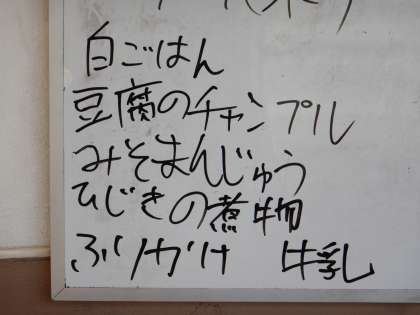 白ごはん
豆腐のチャンプル
みそまんじゅう
ひじきの煮物
ふりかけ 牛乳